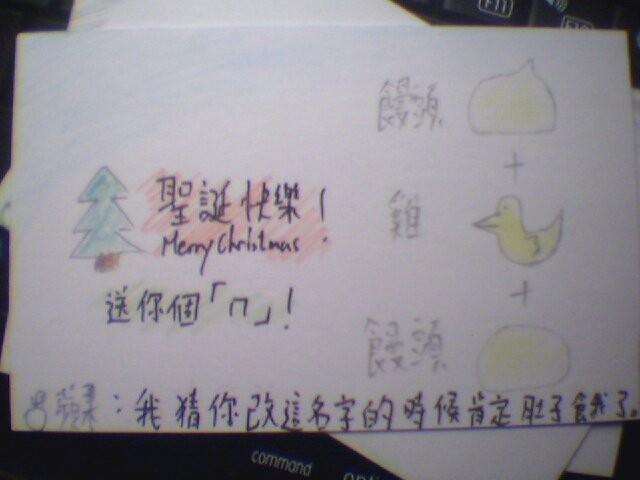 聖誕快樂！
Merry Christmas.
送你個「ㄇ」！
饅頭
+
雞
+
饅頭
蘋果：我猜你改這名字的時候肯定肚子餓了。
F11
command